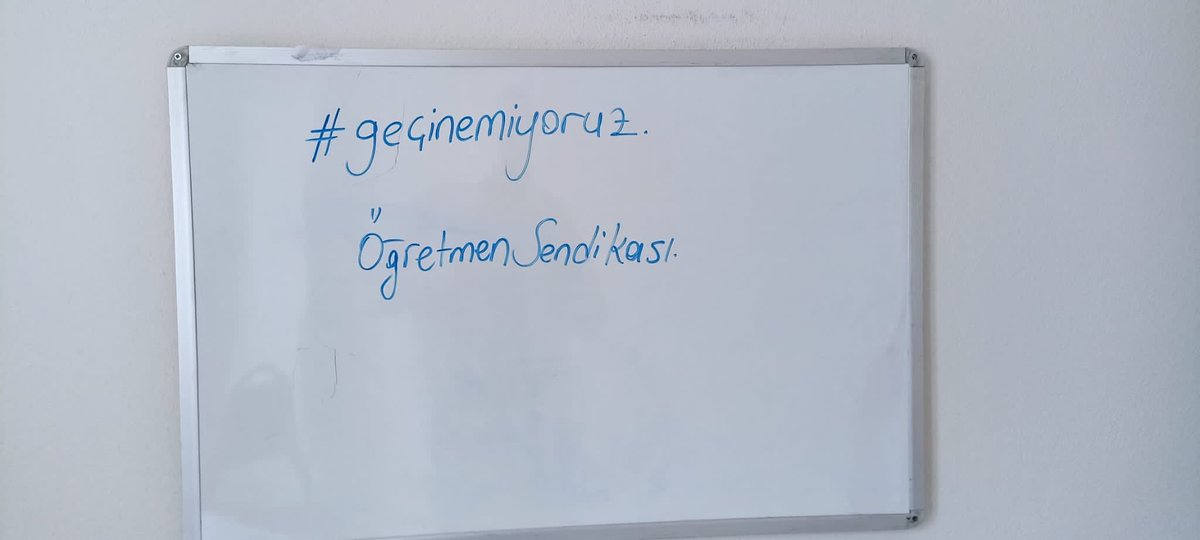 #geçinemiyoruz.
Öğretmen Sendikası.